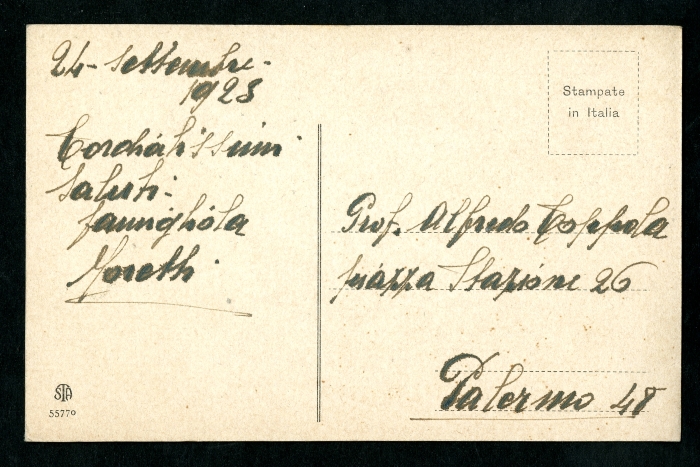 24- Settembre-
1923
Cordialissimi
saluti-
famigliola
Moretti
Stampate
in Italia
Prof. Alfredo Coppola
piazza Stazione 26
Palermo 48
STA
55770